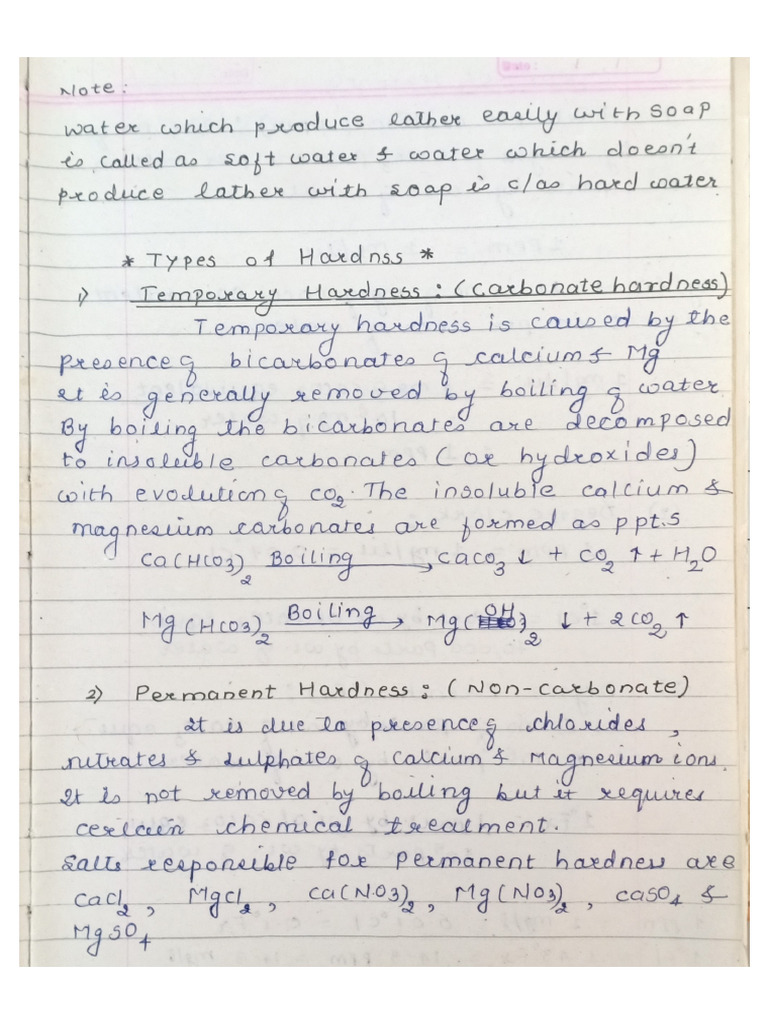 Note:
water which produce lather easily with soap
is called as soft water & water which doesn't
produce lather with soap is c/as hard water.
* Types of Hardnss *
1) Temporary Hardness: (carbonate hardness)
Temporary hardness is caused by the
presence of bicarbonates of calcium & Mg
It is generally removed by boiling of water.
By boiling the bicarbonates are decomposed
to insoluble carbonates (or hydroxides)
with evolution of CO2. The insoluble calcium &
magnesium carbonates are formed as ppt.s
Ca(HCO3)2 Boiling → CaCO3 ↓ + CO2 ↑ + H2O
Mg(HCO3)2 Boiling → Mg(OH)2 ↓ + 2CO2 ↑
2) Permanent Hardness: (Non-carbonate)
It is due to presence of chlorides,
nitrates & sulphates of calcium & Magnesium ions.
It is not removed by boiling but it requires
certain chemical treatment.
Salts responsible for permanent hardness are
CaCl2, MgCl2, Ca(NO3)2, Mg(NO3)2, CaSO4 &
MgSO4